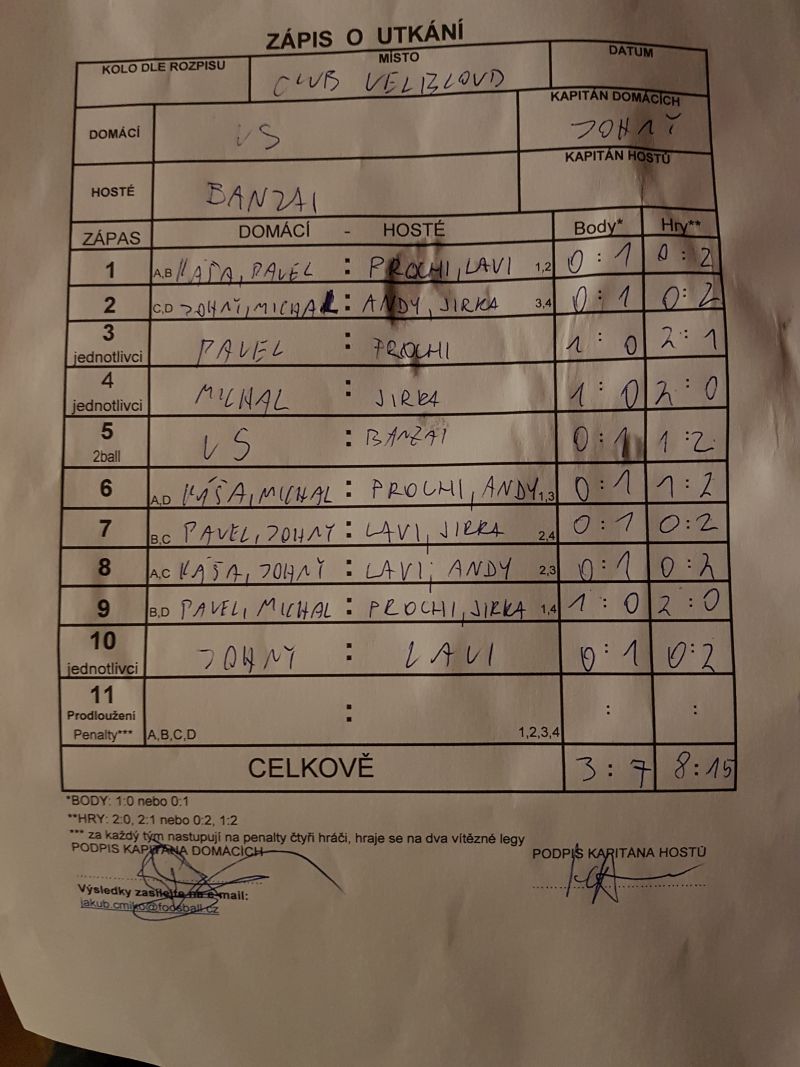 ZÁPIS O UTKÁNÍ
KOLO DLE ROZPISU MÍSTO DATUM
CLUB VELBLOUD
DOMÁCÍ VS KAPITÁN DOMÁCÍCH
JOHNY
HOSTÉ BANZAI KAPITÁN HOSTŮ
ZÁPAS DOMÁCÍ - HOSTÉ Body* Hry**
1 A,B KÁŠA, PAVEL : PROCHI, LAVI 1,2 0:1 0:2
2 C,D JOHNY, MICHAL : ANDY, JIRKA 3,4 0:1 0:2
3 jednotlivci PAVEL : PROCHI 1:0 2:1
4 jednotlivci MICHAL : JIRKA 1:0 2:0
5 2ball VS : BANZAI 0:1 1:2
6 A,D KÁŠA, MICHAL : PROCHI, ANDY 1,3 0:1 1:2
7 B,C PAVEL, JOHNY : LAVI, JIRKA 2,4 0:1 0:2
8 A,C KÁŠA, JOHNY : LAVI, ANDY 2,3 0:1 0:2
9 B,D PAVEL, MICHAL : PROCHI, JIRKA 1,4 1:0 2:0
10 jednotlivci JOHNY : LAVI 0:1 0:2
11 Prodloužení : : :
Penalty*** A,B,C,D 1,2,3,4
CELKOVĚ 3:7 8:15
*BODY: 1:0 nebo 0:1
**HRY: 2:0, 2:1 nebo 0:2, 1:2
*** za každý tým nastupují na penalty čtyři hráči, hraje se na dva vítězné legy
PODPIS KAPITÁNA DOMÁCÍCH PODPIS KAPITÁNA HOSTŮ
Výsledky zasílejte na e-mail:
jakub.cmiko@foosball.cz